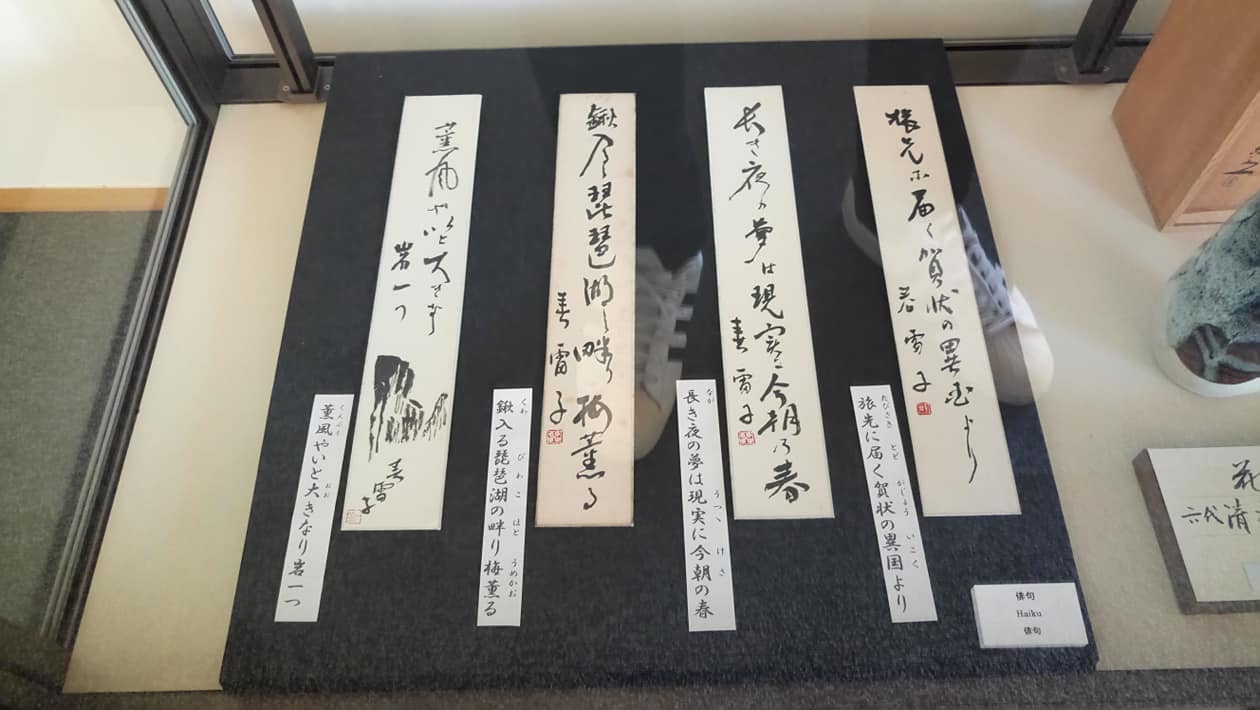 旅先に届く賀状の異国より
長き夜の夢は現実に今朝の春
鍬入る琵琶湖の畔り梅薫る
薫風やいと大きなり
岩一つ
たびさき とど がじょう いこく
旅先に届く賀状の異国より
なが うつつ けさ
長き夜の夢は現実に今朝の春
くわ びわこ ほと うめかお
鍬入る琵琶湖の畔り梅薫る
くんぷう おお
薫風やいと大きなり岩一つ
俳句
Haiku
俳句
花
六代清